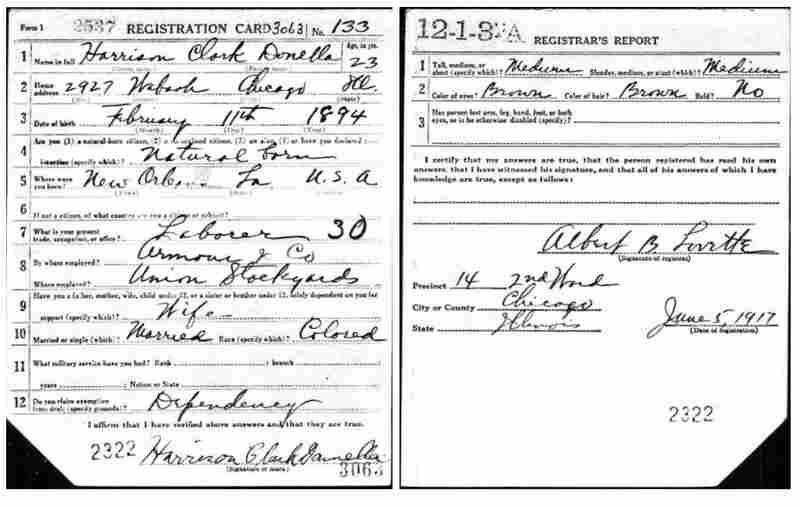 Form 1 2537 REGISTRATION CARD 3063 No. 133
1 Name in full Harrison Clark Donella Age, in yrs. 23
2 Home address 2927 Wabash Chicago Ill.
3 Date of birth February 11th 1894
(Month) (Day) (Year)
4 Are you (1) a natural-born citizen, (2) a naturalized citizen, (3) an alien, (4) or have you declared your
intention (specify which)? Natural born
5 Where were you born? New Orleans La U.S.A
6 If not a citizen, of what country are you a citizen or subject?
7 What is your present trade, occupation, or office? Laborer 30
8 By whom employed? Armour & Co
Where employed? Union Stockyards
9 Have you a father, mother, wife, child under 12, or a sister or brother under 12, solely dependent on you for
support (specify which)? Wife
10 Married or single (which)? Married Race (specify which)? Colored
11 What military service have you had? Rank ; branch
years ; Nation or State
12 Do you claim exemption from draft (specify grounds)? Dependency
I affirm that I have verified above answers and that they are true.
2322 Harrison Clark Dannella
3063
12-1-3 A REGISTRAR'S REPORT
1 Tall, medium, or short (specify which)? Medium Slender, medium, or stout (which)? Medium
2 Color of eyes? Brown Color of hair? Brown Bald? No
3 Has person lost arm, leg, hand, foot, or both
eyes, or is he otherwise disabled (specify)?
I certify that my answers are true, that the person registered has read his own
answers, that I have witnessed his signature, and that all of his answers of which I have
knowledge are true, except as follows:
Albert B. Lovette
(Signature of registrar)
Precinct 14 2nd Ward
City or County Chicago
State Illinois June 5, 1917
(Date of registration)
2322